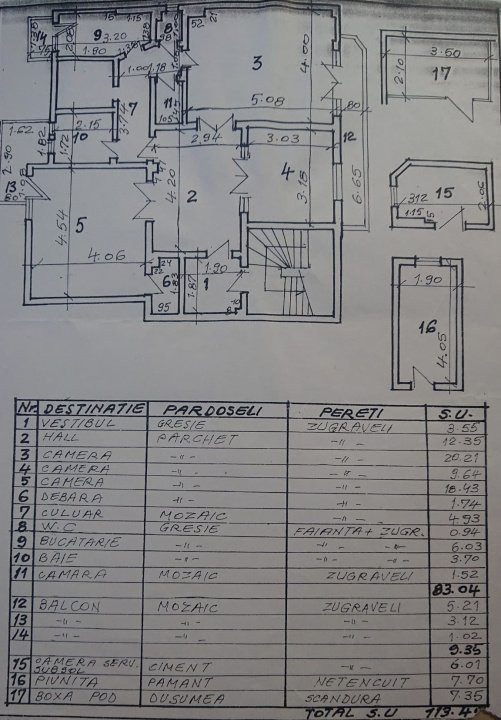 14 1.38 .75
9 3.20 15 15
2.08
1.80
8
.98
52 21
3
4.00
5.08
1.00 1.18
7
3.74
11
105
2.94
80
12
6.65
3.03
4
3.18
1.62
2.90
13
80
1.98
10 2.15
1.82 1.72
5
4.54
4.06
2
4.20
6
24
22
1.83
95
1.90
1
1.87
3.50
2.10
17
15
312
1.15
2.06
1.90
16
4.05
Nr. DESTINATIE PARDOSELI PERETI S.U.
1 VESTIBUL GRESIE ZUGRAVELI 3.55
2 HALL PARCHET -"- 12.35
3 CAMERA -"- -"- 20.21
4 CAMERA -"- -"- 9.64
5 CAMERA -"- -"- 18.43
6 DEBARA -"- -"- 1.74
7 CULUAR MOZAIC -"- 4.93
8 W.C GRESIE FAIANTA+ ZUGR. 0.94
9 BUCATARIE -"- -"- -"- 6.03
10 BAIE -"- -"- -"- 3.70
11 CAMARA MOZAIC ZUGRAVELI 1.52
83.04
12 BALCON MOZAIC ZUGRAVELI 5.21
13 -"- -"- -"- 3.12
14 -"- -"- -"- 1.02
9.35
15 CAMERA SERV. SUBSOL CIMENT -"- 6.01
16 PIVNITA PAMANT NETENCUIT 7.70
17 BOXA POD DUSUMEA SCANDURA 7.35
TOTAL S.U